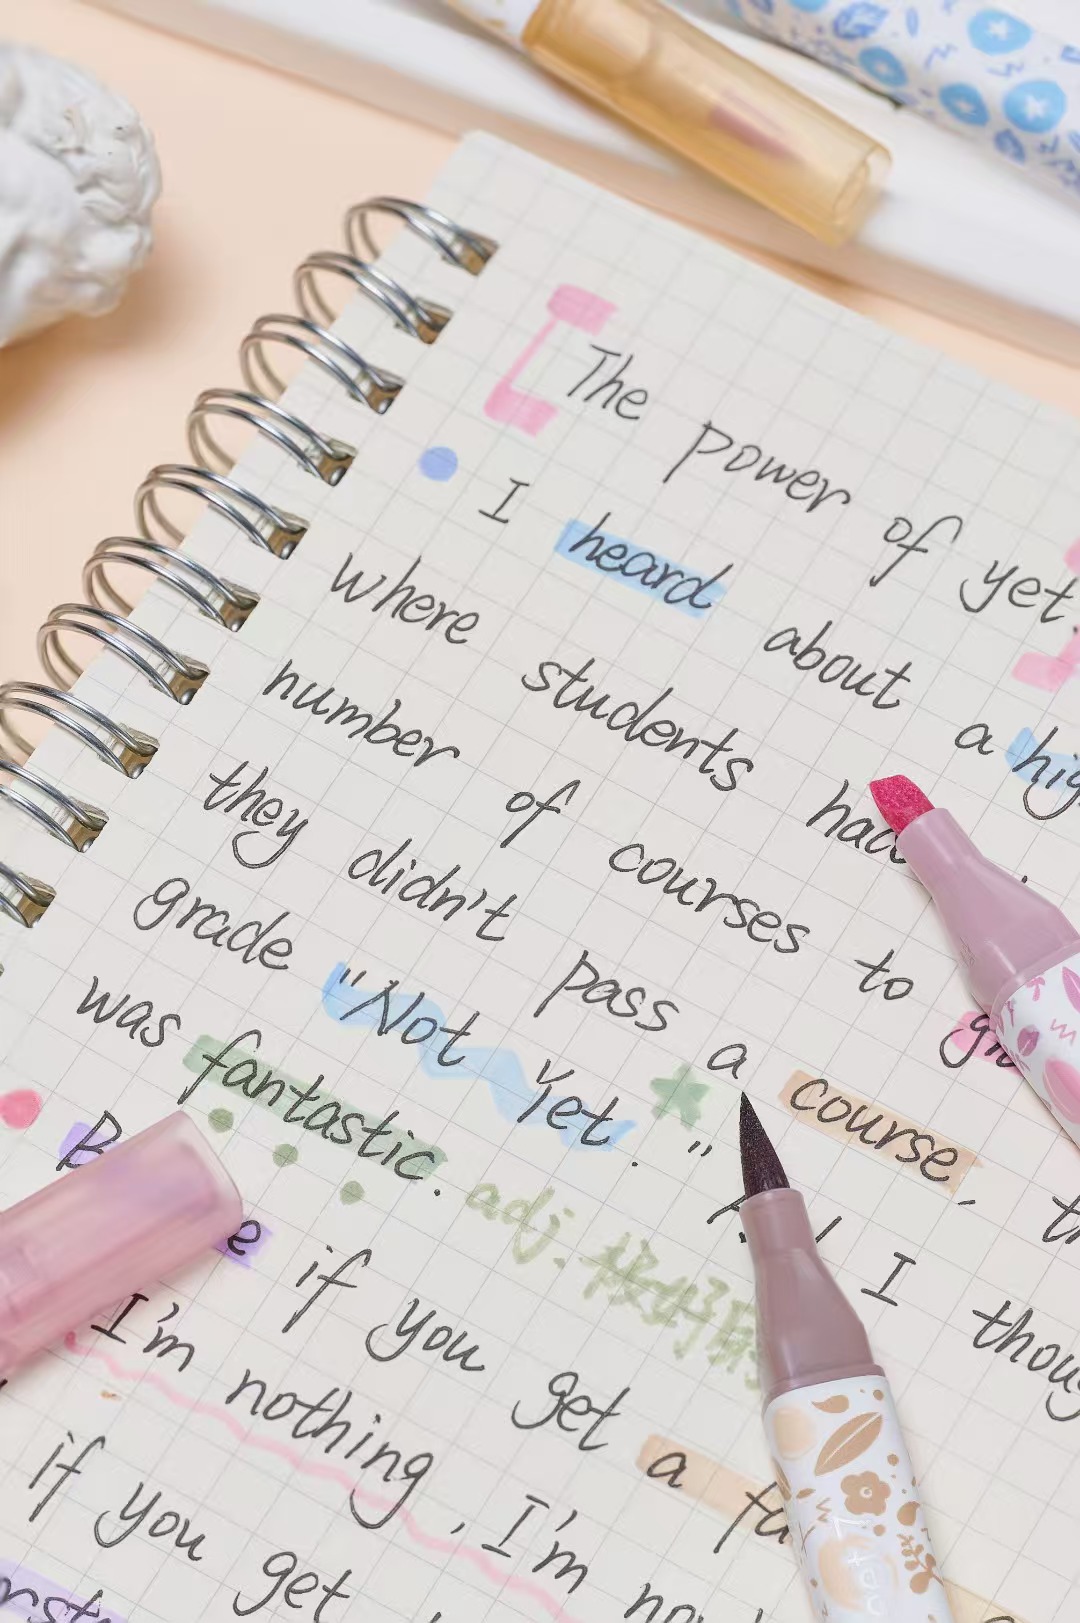 The power of yet.
I heard about a hig
where students had
number of courses to
they didn't pass a course,
grade "Not Yet." I thoug
was fantastic. adj.
if you get a fa
I'm nothing, I'm
if you get